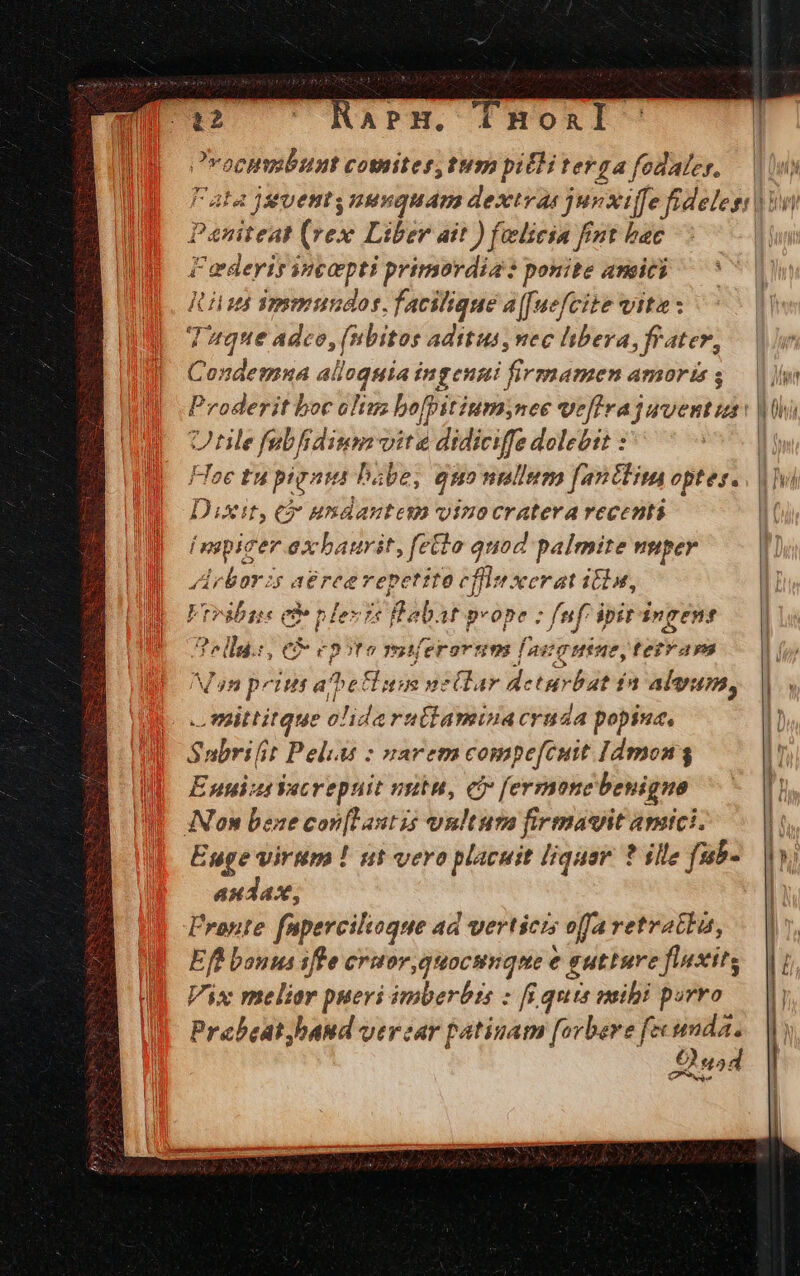 12 RAPH. THORI
Procumbunt comites, tum picti terga sodales.
Fata juvent, nunquam dextras junxisse fideles
Pæniteat (rex Liber ait) fœlicia sint hæc
Fœderis incœpti primordia: ponite amici
Ritus immundos, facilique assuescite vitæ:
Tuque adeo, subitos aditus, nec libera, frater,
Condemna alloquia ingenui firmamen amoris;
Proderit hoc olim hospitium, nec vestra juventus
Utile subsidium vitæ didicisse dolebit:
Hoc tu pignus habe, quo nullum sanctius optes.
Dixit, & undantem vino cratera recenti
Impiger exhaurit, secto quod palmite nuper
Arboris aëreæ repetito effluxerat ictu,
Fibus & plexis stabat prope: suspipit ingens
Pellus, & epoto miserorum sanguine, tetram
Non prius aspectum nectar deturbat in alvum,
mittitque olida ructamina cruda popinæ.
Subrisit Pelius: narem compescuit Idmon;
Eunius increpuit nutu, & sermone benigno
Non bene constantis vultum firmavit amici.
Euge virum! ut vero placuit liquor? ille sub-
audax,
Fronte supercilioque ad verticis ossa retractis,
Est bonus iste cruor, quocunque è gutture fluxit,
Vix melior pueri imberbis: si quis mihi porro
Præbeat, haud verear patinam sorbere secundā.
Quod